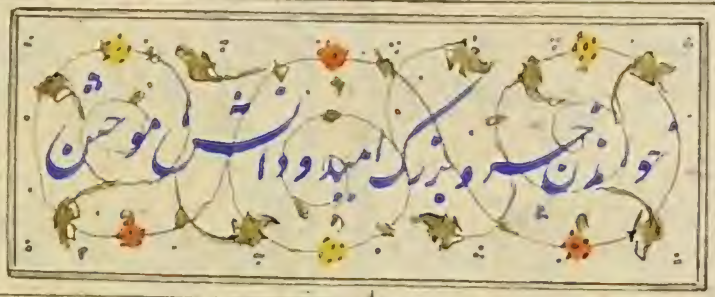 خواندن خسرو بزرک امید و دانش موختن